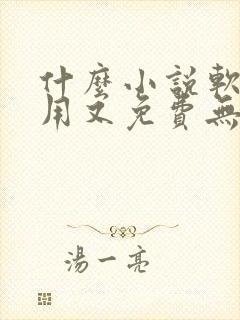 什麼小說軟
用又免費無
湯一亮